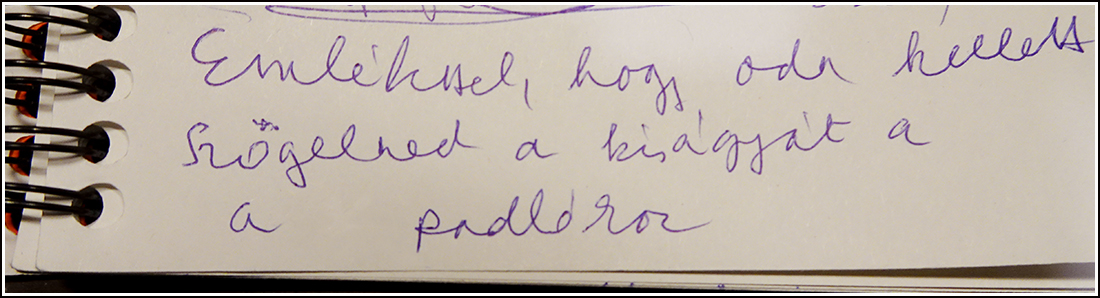 Emlékszel, hogy oda kellett
szögelned a kiságyát a
a padlóhoz